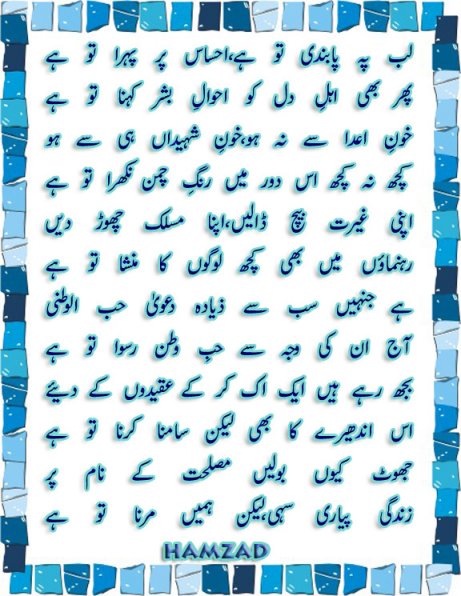 لب پہ پابندی تو ہے،احساس پر پہرا تو ہے
پھر بھی اہلِ دل کو احوالِ بشر کہنا تو ہے
خونِ اعدا سے نہ ہو،خونِ شہیداں ہی سے ہو
کچھ نہ کچھ اس دور میں رنگِ چمن نکھرا تو ہے
اپنی غیرت بیچ ڈالیں،اپنا مسلک چھوڑ دیں
رہنماؤں میں بھی کچھ لوگوں کا منشا تو ہے
ہے جنہیں سب سے ذیادہ دعویٰ حب الوطنی
آج ان کی وجہ سے حبِ وطن رسوا تو ہے
بجھ رہے ہیں ایک اک کر کے عقیدوں کے دیئے
اس اندھیرے کا بھی لیکن سامنا کرنا تو ہے
جھوٹ کیوں بولیں مصلحت کے نام پر
زندگی پیاری سہی،لیکن ہمیں مرنا تو ہے
HAMZAD